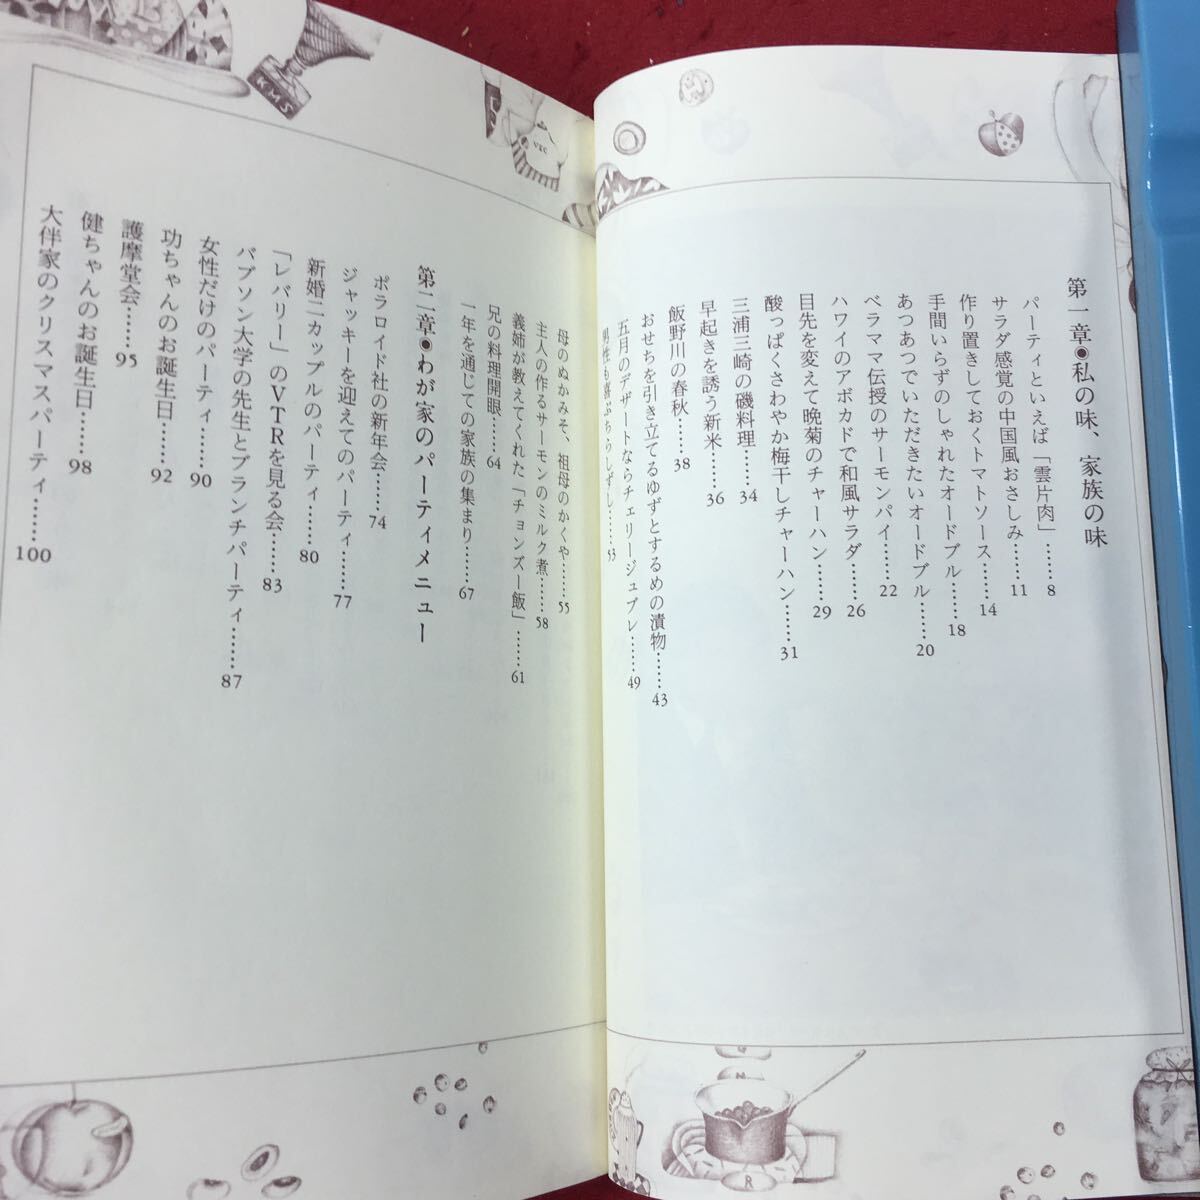 第一章●私の味、家族の味
パーティといえば「雲片肉」……8
サラダ感覚の中国風おさしみ……11
作り置きしておくトマトソース……14
手間いらずのしゃれたオードブル……18
あつあつでいただきたいオードブル……20
ベラママ伝授のサーモンパイ……22
ハワイのアボカドで和風サラダ……26
目先を変えて晩菊のチャーハン……29
酸っぱくさわやか梅干しチャーハン……31
三浦三崎の磯料理……34
早起きを誘う新米……36
飯野川の春秋……38
おせちを引き立てるゆずとするめの漬物……43
五月のデザートならチェリージュブレ……49
男性も喜ぶちらしずし……53
母のぬかみそ、祖母のかくや……55
主人の作るサーモンのミルク煮……58
義姉が教えてくれた「チョンズー飯」……61
兄の料理開眼……64
一年を通じての家族の集まり……67
第二章●わが家のパーティメニュー
ポラロイド社の新年会……74
ジャッキーを迎えてのパーティ……77
新婚二カップルのパーティ……80
「レバリー」のVTRを見る会……83
バブソン大学の先生とブランチパーティ……87
女性だけのパーティ……90
功ちゃんのお誕生日……92
護摩堂会……95
健ちゃんのお誕生日……98
大伴家のクリスマスパーティ……100
KMS
R